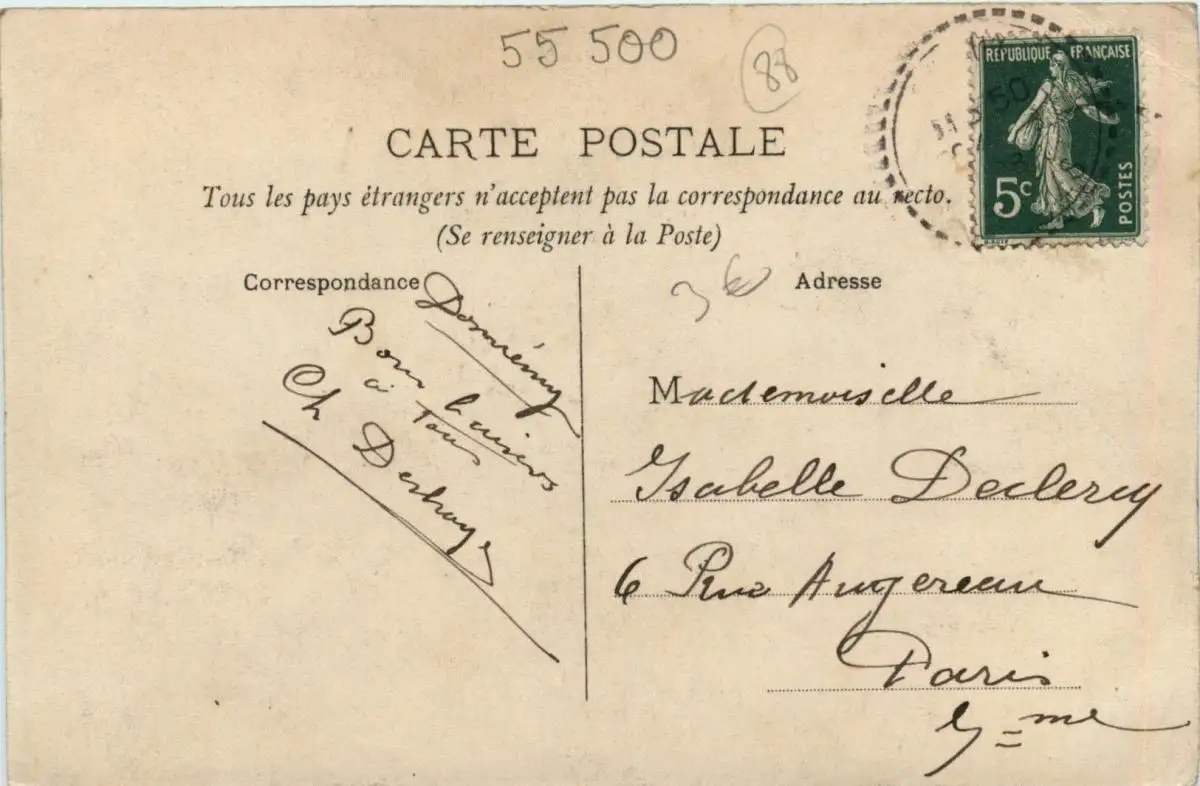 55 500
88
CARTE POSTALE
RÉPUBLIQUE FRANÇAISE
5c
POSTES
Tous les pays étrangers n'acceptent pas la correspondance au recto.
(Se renseigner à la Poste)
Correspondance
Adresse
Domrémy
Bons baisers
à Tous
Ch Deshayes
Mademoiselle
Isabelle Declercq
6 Rue Augereau
Paris